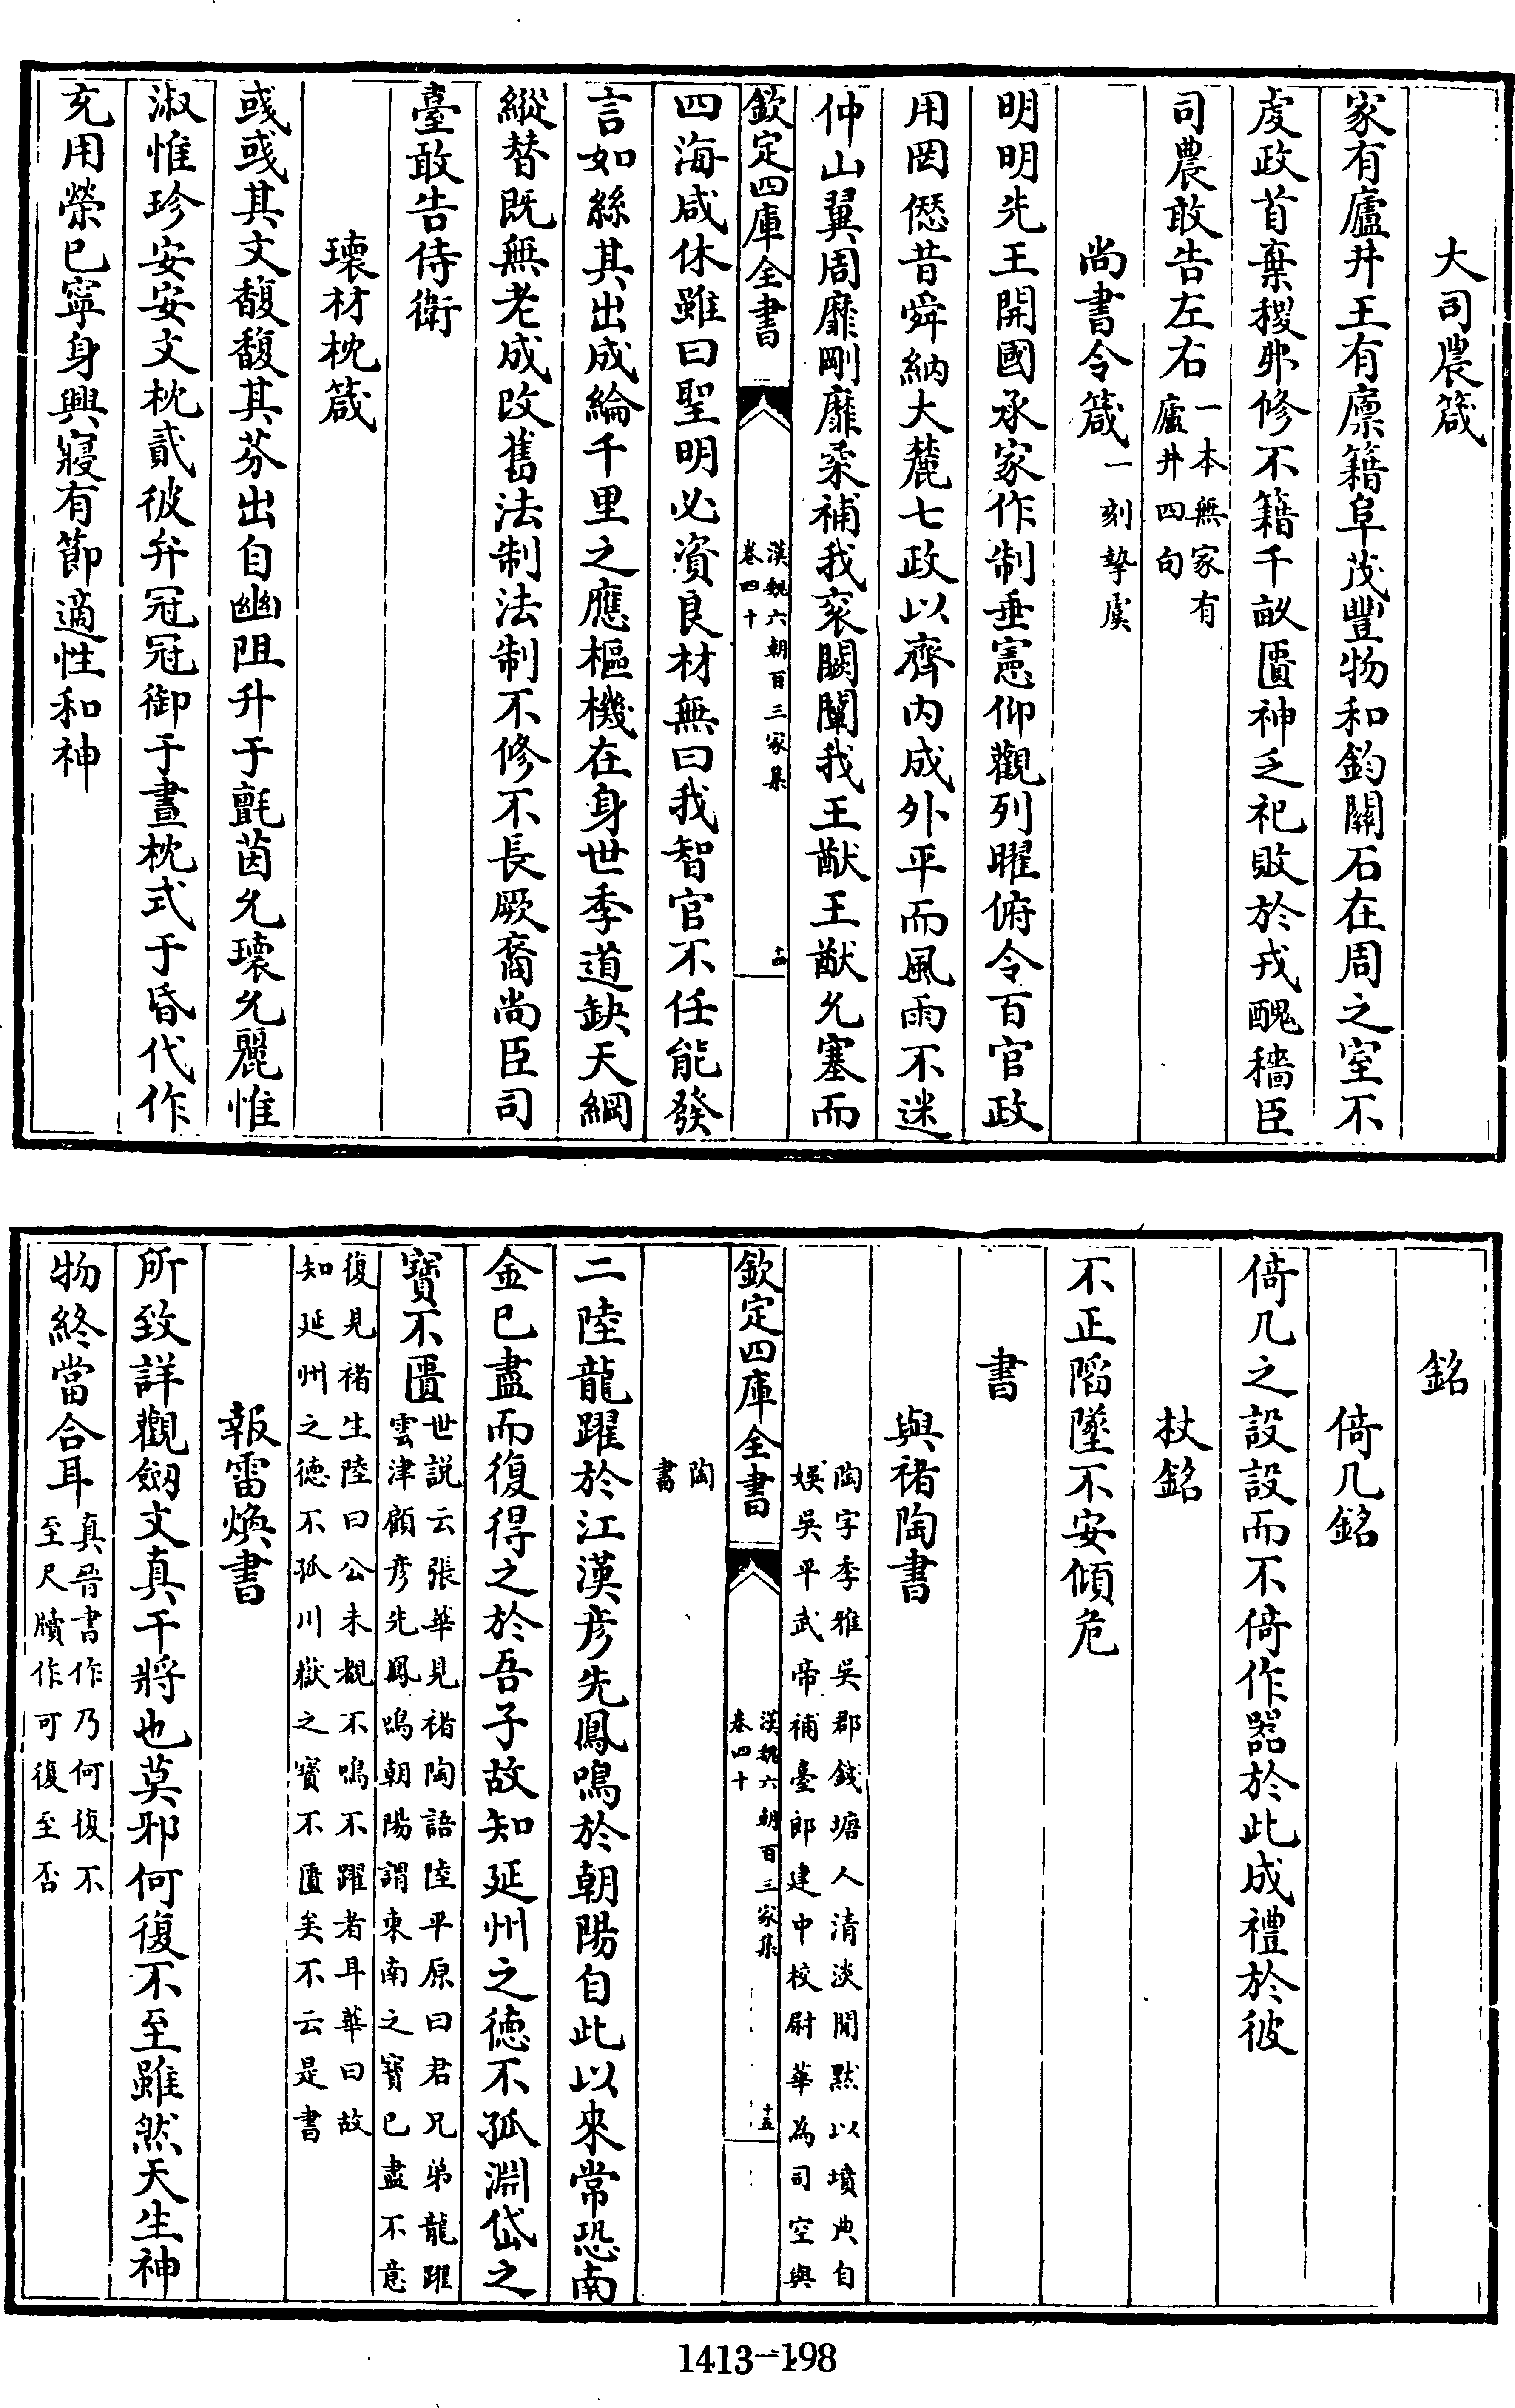 大司農箴
家有廬井王有廩籍阜茂豐物和鈞關石在周之室不
虔政首棄稷弗修不籍千畝匱神乏祀敗於戎醜穡臣
司農敢告左右一本無家有廬井四句
尚書令箴一刻摯虞
明明先王開國承家作制垂憲仰觀列曜俯令百官政
用罔僁昔舜納大麓七政以齊內成外平而風雨不迷
仲山翼周靡剛靡柔補我衮闕闡我王猷王猷允塞而
欽定四庫全書
漢魏六朝百三家集
卷四十
十四
四海咸休雖曰聖明必資良材無曰我智官不任能發
言如絲其出成綸千里之應樞機在身世季道缺天綱
縱替既無老成改舊法制法制不修不長厥裔尚臣司
臺敢告侍衛
瓌材枕箴
彧彧其文馥馥其芬出自幽阻升于氈茵允瓌允麗惟
淑惟珍安安文枕貳彼弁冠冠御于晝枕式于昏代作
充用榮已寧身興寢有節適性和神
銘
倚几銘
倚几之設設而不倚作器於此成禮於彼
杖銘
不正䧟墜不安傾危
書
與褚陶書
陶字季雅吳郡錢塘人清淡閒默以墳典自
娛吳平武帝補臺郎建中校尉華為司空與
欽定四庫全書
漢魏六朝百三家集
卷四十
十五
陶
書
二陸龍躍於江漢彥先鳳鳴於朝陽自此以來常恐南
金已盡而復得之於吾子故知延州之德不孤淵岱之
寶不匱世説云張華見禇陶語陸平原曰君兄弟龍躍
雲津顧彥先鳳鳴朝陽謂東南之寶已盡不意
復見禇生陸曰公未覩不鳴不躍者耳華曰故
知延州之德不孤川嶽之寶不匱矣不云是書
報雷煥書
所致詳觀劒文真干將也莫邪何復不至雖然天生神
物終當合耳真晉書作乃何復不
至尺牘作可復至否
1413—198